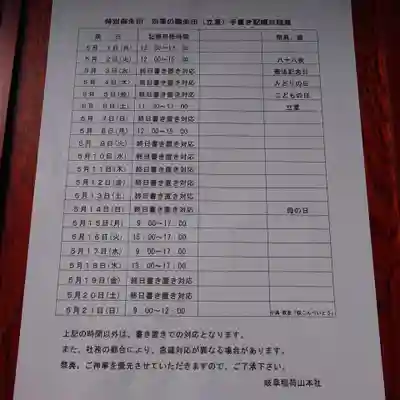 特別御朱印 初夏の御朱印（立夏）手書き記帳日程表
月 日 記帳時間 祭典、備
5月 1日(月) 13:00~17:00
5月 2日(火) 12:00~15:00 八十八夜
5月 3日(水) 終日書き置き対応 憲法記念日
5月 4日(木) 終日書き置き対応 みどりの日
5月 5日(金) 終日書き置き対応 こどもの日
5月 6日(土) 11:00~17:00 立夏
5月 7日(日) 終日書き置き対応
5月 8日(月) 12:00~15:00
5月 9日(火) 終日書き置き対応
5月10日(水) 終日書き置き対応
5月11日(木) 終日書き置き対応
5月12日(金) 終日書き置き対応
5月13日(土) 終日書き置き対応
5月14日(日) 終日書き置き対応 母の日
5月15日(月) 9:00~17:00
5月16日(火) 15:00~17:00
5月17日(水) 9:00~17:00
5月18日(木) 13:00~17:00
5月19日(金) 終日書き置き対応
5月20日(土) 終日書き置き対応
5月21日(日) 9:00~17:00
上記の時間以外は、書き置きでの対応となります。
また、社務の都合により、急遽対応が異なる場合があります。
祭典、ご神事を優先させていただきますので、ご了承下さい。
岐阜稲荷山本社